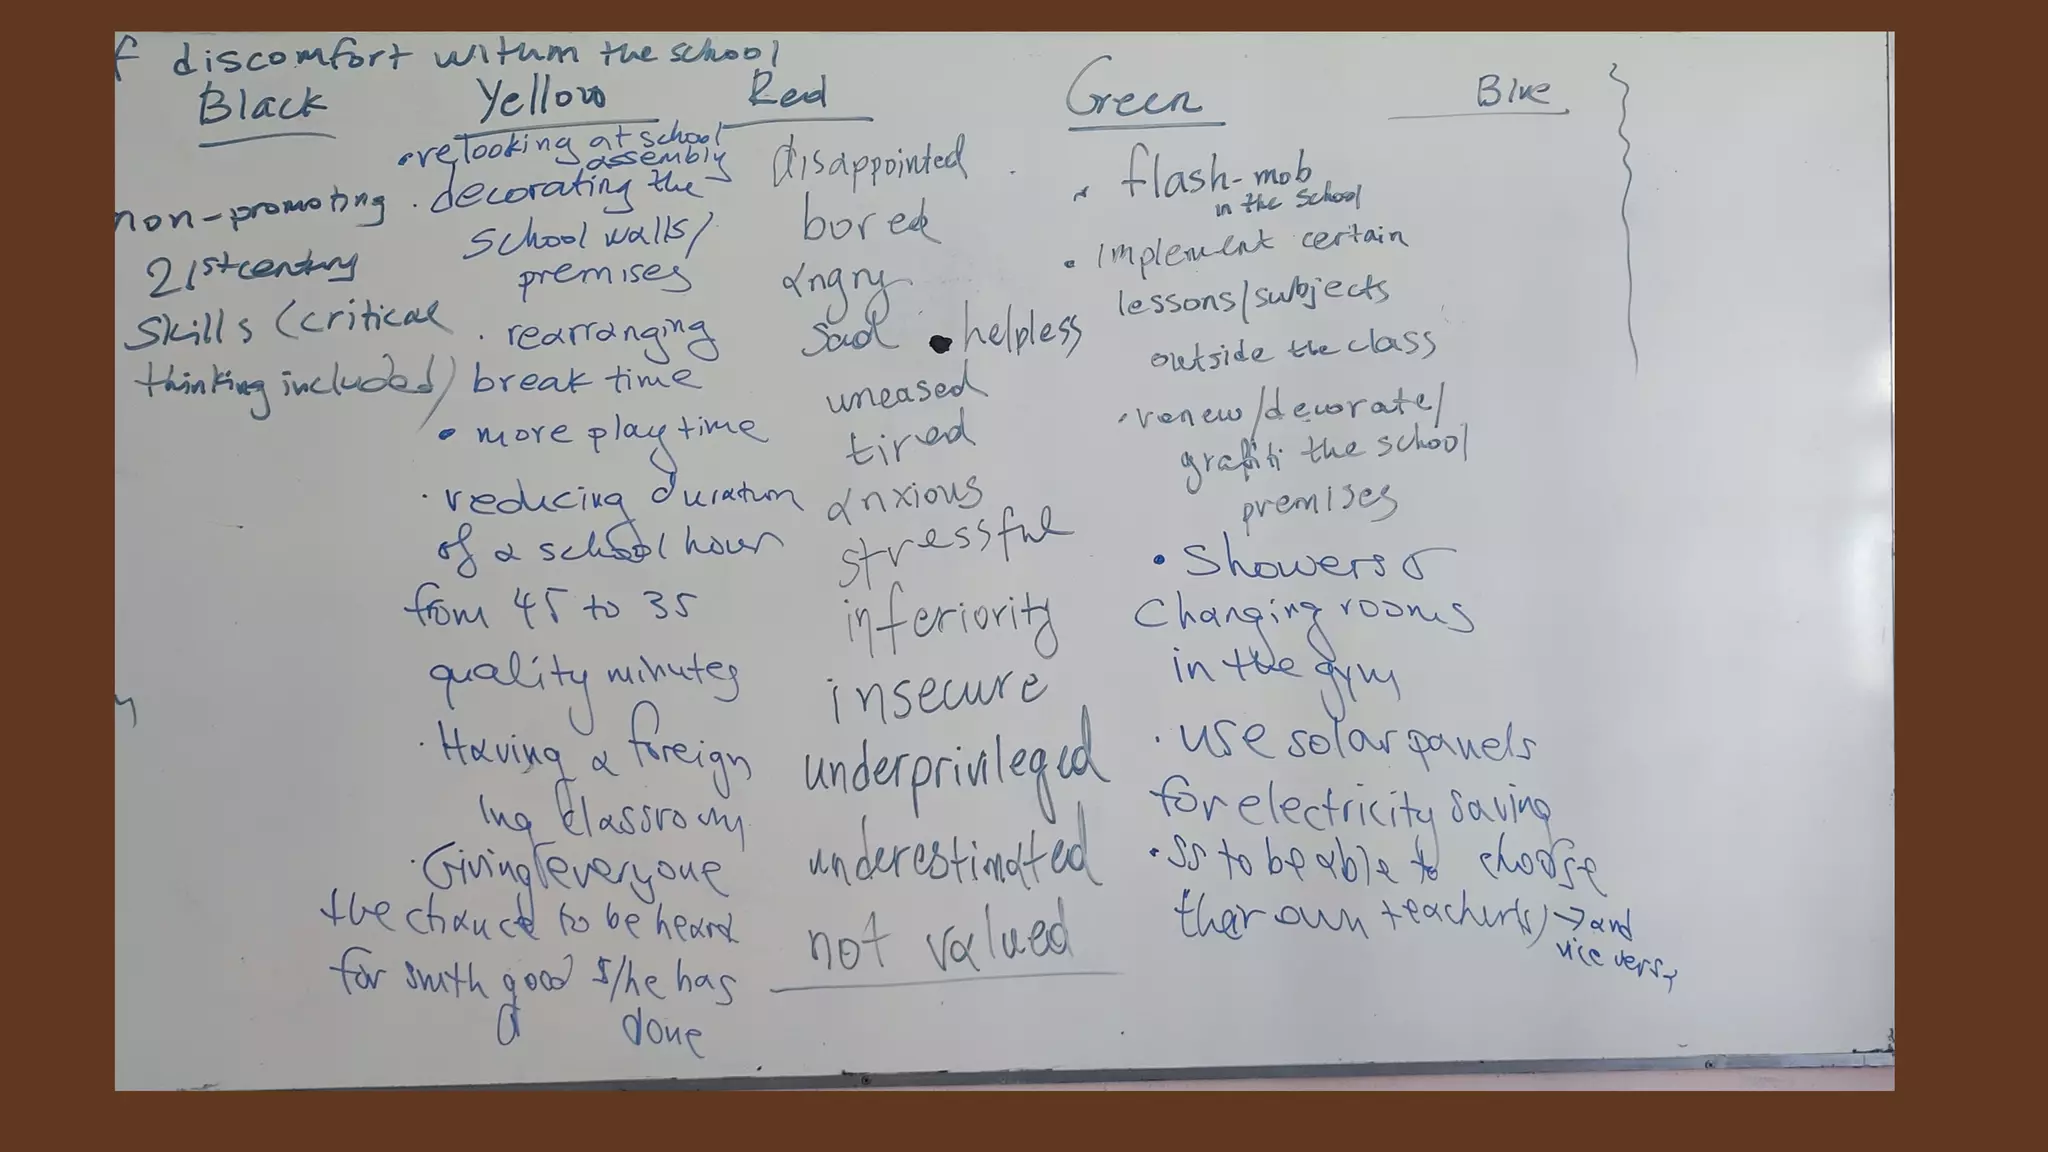 f discomfort within the school
Black
non-promoting
21st century
skills (critical
thinking included)
Yellow
• relooking at school
assembly
· decorating the
school walls/
premises
· rearranging
break time
• more play time
· reducing duration
of a school hour
from 45 to 35
quality minutes
· Having a foreign
lng classroom
· Giving everyone
the chance to be heard
for smth good s/he has
done
Red
disappointed
bored
angry
sad • helpless
uneased
tired
anxious
stressful
inferiority
insecure
underprivileged
underestimated
not valued
Green
• flash-mob
in the school
• implement certain
lessons/subjects
outside the class
· renew/decorate/
grafiti the school
premises
• Showers
changing rooms
in the gym
· use solar panels
for electricity saving
• Ss to be able to choose
their own teacher(s) → and
vice versa
Blue